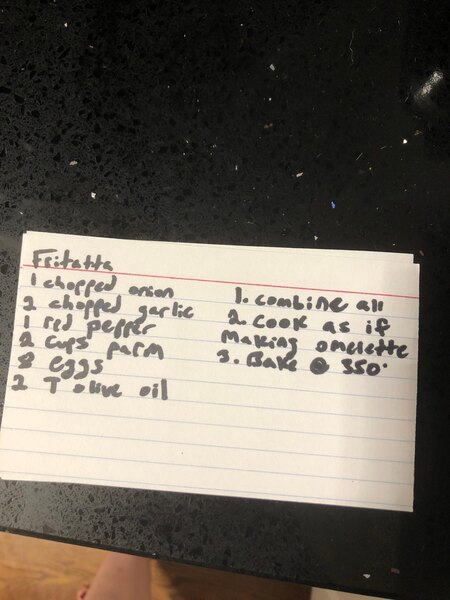 Fritatta
1 chopped onion
2 chopped garlic
1 red pepper
2 cups parm
8 eggs
2 T olive oil
1. combine all
2. Cook as if
Making omelette
3. Bake @ 350°